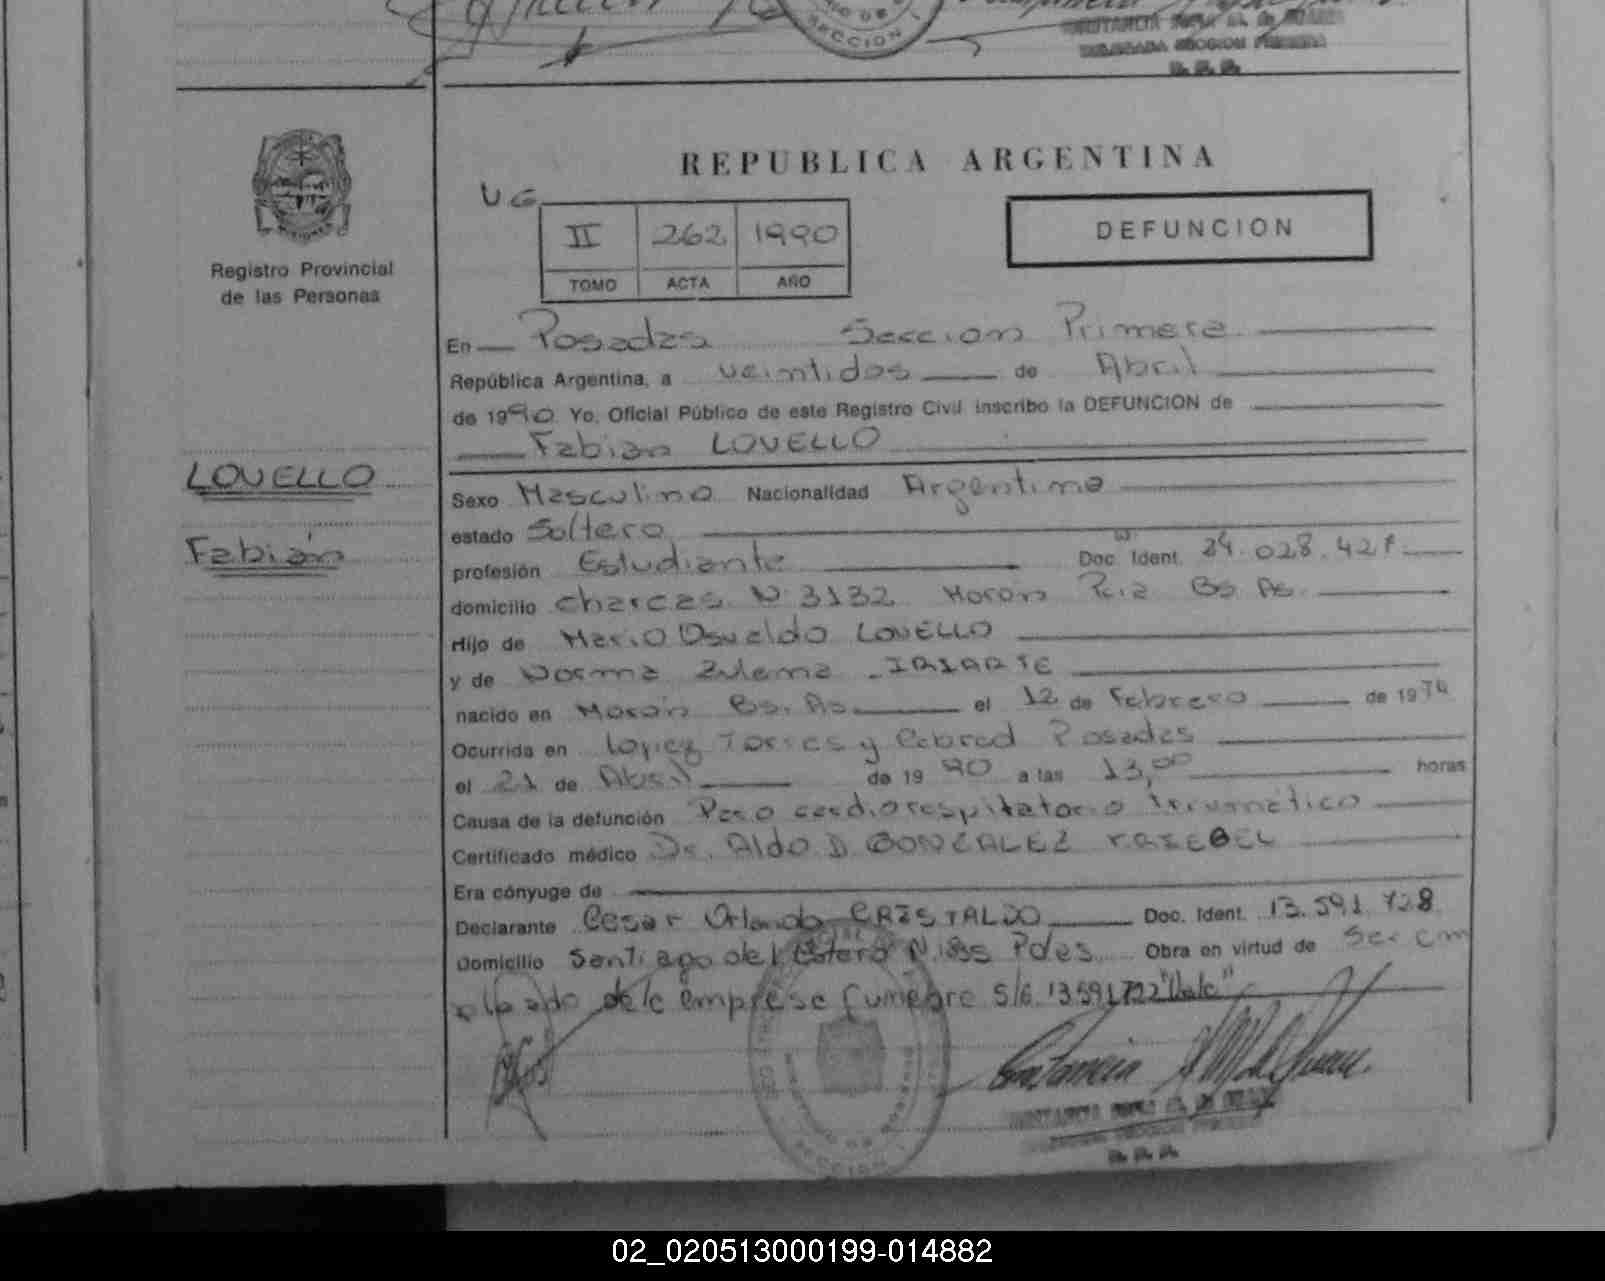 SECCION
DELEGADA SECCION PRIMERA
R. P. P.
REPUBLICA ARGENTINA
UG
II 262 1990
TOMO ACTA AÑO
DEFUNCION
Registro Provincial
de las Personas
En Posadas Seccion Primera
República Argentina, a veintidos de Abril
de 1990 Yo, Oficial Público de este Registro Civil inscribo la DEFUNCION de
Fabian LOVELLO
LOVELLO
Fabián
Sexo Masculino Nacionalidad Argentina
estado Soltero
profesión Estudiante Doc. Ident. 24.028.427
domicilio Charcas N 3132 Morón Pcia Bs As.
Hijo de Mario Osvaldo LOVELLO
y de Norma Zulema IRIARTE
nacido en Morón Bs. As. el 12 de Febrero de 1974
Ocurrida en Lopez Torres y Cabred Posadas
el 21 de Abril de 1990 a las 13,00 horas
Causa de la defunción Paro cardiorespiratorio traumático
Certificado médico Dr. Aldo D. GONZALEZ
Era cónyuge de
Declarante Cesar Orlando CRISTALDO Doc. Ident. 13.591.728
Domicilio Santiago del Estero N Pdas Obra en virtud de Ser em
pleado de la empresa funebre S/G 13591722 "Vale"
SECCION
02_020513000199-014882